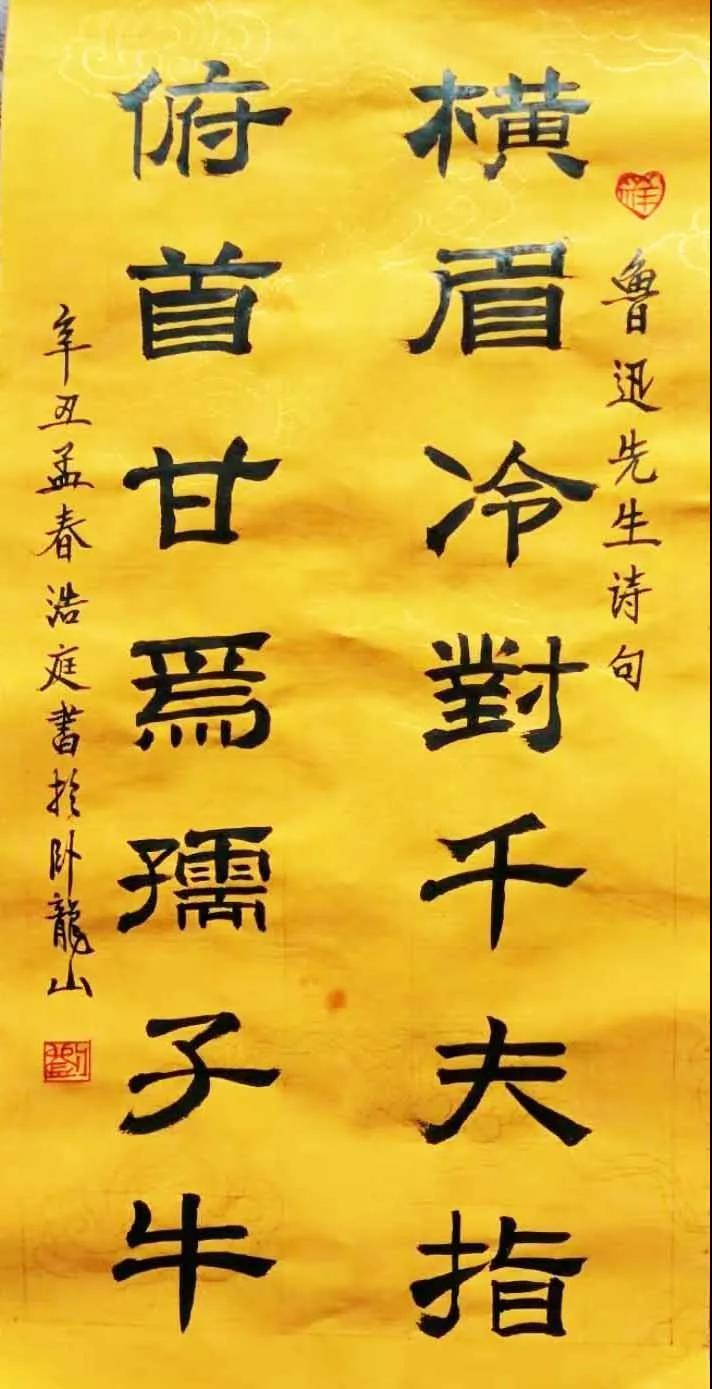 鲁迅先生诗句
横眉冷對千夫指
俯首甘爲孺子牛
辛丑孟春浩庭書於卧龍山
祥
劉